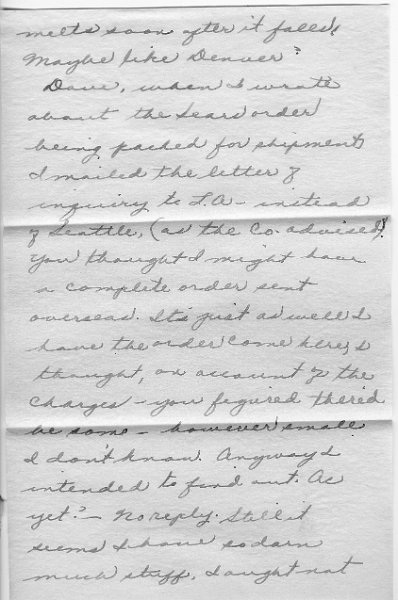 melts soon after it falls,
Maybe like Denver?
Dave, when I wrote
about the Sears order
being packed for shipment
I mailed the letter of
inquiry to L.A - instead
of Seattle, (as the Co. advised)
you thought I might have
a complete order sent
overseas. It's just as well I
have the order come here, I
thought, on account of the
charges - you figured there'd
be some - however small
I don't know. Anyway I
intended to find out. As
yet? - No reply. Still it
seems I have so darn
much stuff, I ought not